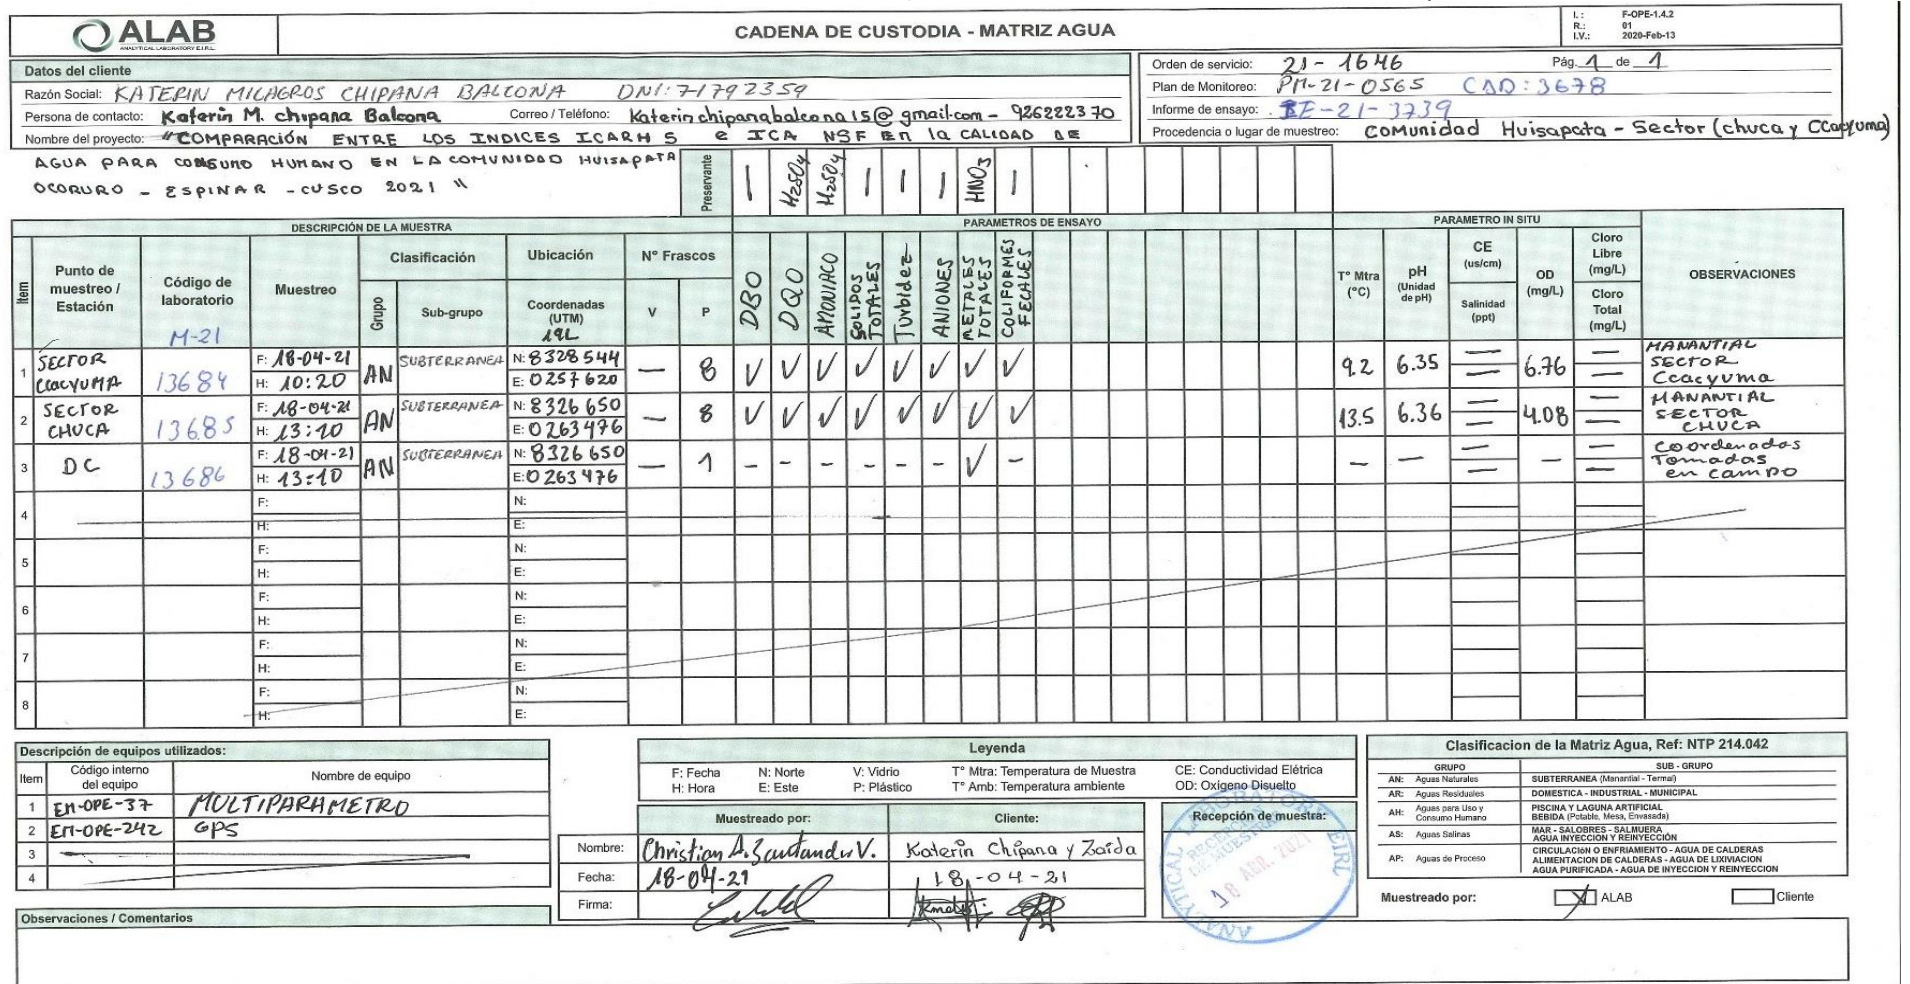 ALAB
ANALYTICAL LABORATORY E.I.R.L.
CADENA DE CUSTODIA - MATRIZ AGUA
I. : F-OPE-1.4.2
R.: 01
I.V.: 2020-Feb-13
Datos del cliente
Razón Social: KATERIN MILAGROS CHIPANA BALCONA DNI: 71792359
Persona de contacto: Katerin M. chipana Balcona Correo / Teléfono: Katerinchipanabalcona15@gmail.com - 926222370
Nombre del proyecto: "COMPARACIÓN ENTRE LOS INDICES ICARHS e ICA NSF En la CALIDAD DE
AGUA PARA CONSUNO HUMANO EN LA COMUNIDAD HUISAPATA
OCORURO - ESPINAR - CUSCO 2021 "
Orden de servicio: 21- 1646 Pág. 1 de 1
Plan de Monitoreo: PM-21-0565 CAD: 3678
Informe de ensayo: IE-21-3739
Procedencia o lugar de muestreo: COMUnidad Huisapata - Sector (chuca y CCacyuma)
Preservante | H2SO4 H2SO4 | | | HNO3 |
DESCRIPCIÓN DE LA MUESTRA PARAMETROS DE ENSAYO PARAMETRO IN SITU
Item Punto de muestreo / Estación Código de laboratorio M-21 Muestreo Clasificación Grupo Sub-grupo Ubicación Coordenadas (UTM) 19L N° Frascos V P
DBO DQO AMONIACO SOLIDOS TOTALES Turbidez ANIONES METALES TOTALES COLIFORMES FECALES
T° Mtra (°C) pH (Unidad de pH) CE (us/cm) Salinidad (ppt) OD (mg/L) Cloro Libre (mg/L) Cloro Total (mg/L) OBSERVACIONES
1 SECTOR CCACYUMA 13684 F: 18-04-21 H: 10:20 AN SUBTERRANEA N: 8328544 E: 0257620 — 8 ✓ ✓ ✓ ✓ ✓ ✓ ✓ ✓ 9.2 6.35 — — 6.76 — — MANANTIAL SECTOR Ccacyuma
2 SECTOR CHUCA 13685 F: 18-04-21 H: 13:10 AN SUBTERRANEA N: 8326650 E: 0263476 — 8 ✓ ✓ ✓ ✓ ✓ ✓ ✓ ✓ 13.5 6.36 — — 4.08 — — MANANTIAL SECTOR CHUCA
3 DC 13686 F: 18-04-21 H: 13:10 AN SUBTERRANEA N: 8326650 E: 0263476 — 1 - - - - - - ✓ - — — — — — — — Coordenadas Tomadas en campo
4 F: H: N: E:
5 F: H: N: E:
6 F: H: N: E:
7 F: H: N: E:
8 F: H: N: E:
Descripción de equipos utilizados:
Item Código interno del equipo Nombre de equipo
1 EM-OPE-37 MULTIPARAMETRO
2 EM-OPE-242 GPS
3
4
Leyenda
F: Fecha N: Norte V: Vidrio T° Mtra: Temperatura de Muestra CE: Conductividad Elétrica
H: Hora E: Este P: Plástico T° Amb: Temperatura ambiente OD: Oxígeno Disuelto
Muestreado por: Cliente: Recepción de muestra:
Nombre: Christian A. Santander V. Katerin Chipana y Zaida
Fecha: 18-04-21 18-04-21
Firma:
ANALYTICAL LABORATORY EIRL
RECEPCIÓN DE MUESTRA
18 ABR. 2021
Clasificacion de la Matriz Agua, Ref: NTP 214.042
GRUPO SUB - GRUPO
AN: Aguas Naturales SUBTERRANEA (Manantial - Termal)
AR: Aguas Residuales DOMESTICA - INDUSTRIAL - MUNICIPAL
AH: Aguas para Uso y Consumo Humano PISCINA Y LAGUNA ARTIFICIAL
BEBIDA (Potable, Mesa, Envasada)
AS: Aguas Salinas MAR - SALOBRES - SALMUERA
AGUA INYECCION Y REINYECCIÓN
AP: Aguas de Proceso CIRCULACIóN O ENFRIAMIENTO - AGUA DE CALDERAS
ALIMENTACION DE CALDERAS - AGUA DE LIXIVIACION
AGUA PURIFICADA - AGUA DE INYECCION Y REINYECCION
Muestreado por: X ALAB Cliente
Observaciones / Comentarios